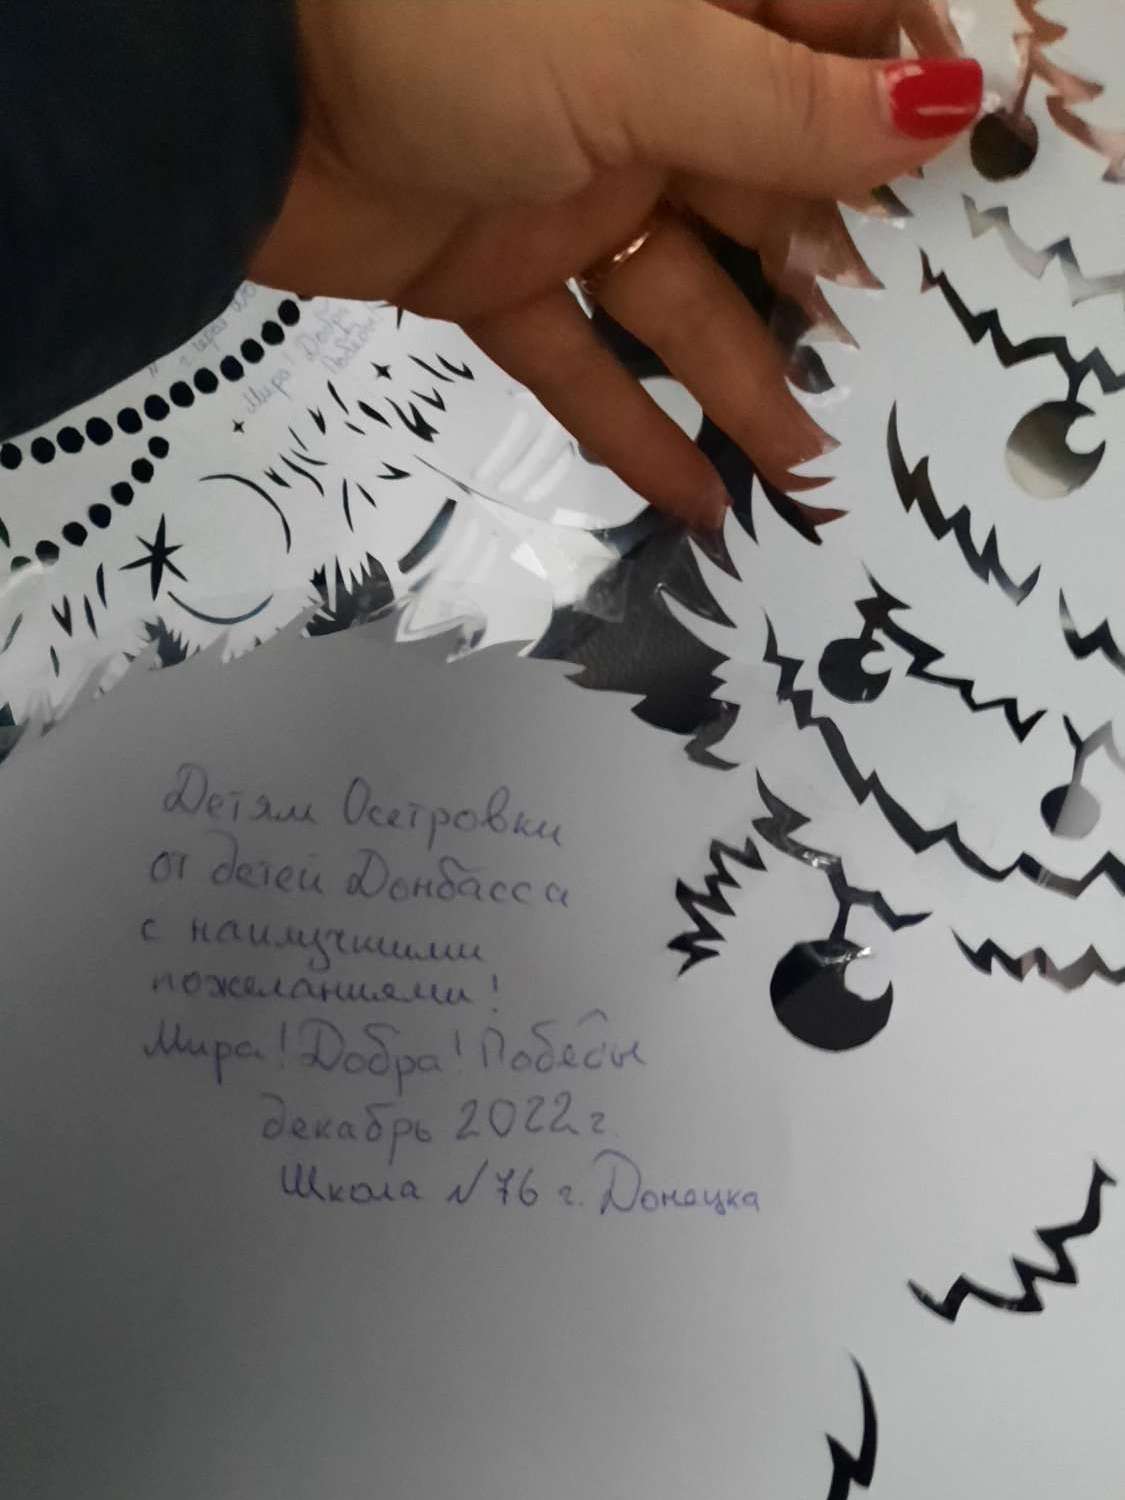 Мира! Добра
Победы
Детям Осетровки
от детей Донбасса
с наилучшими
пожеланиями!
Мира! Добра! Победы
декабрь 2022 г.
Школа №76 г. Донецка